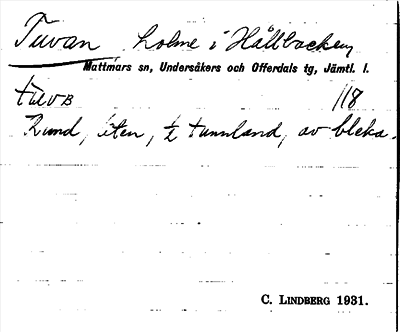 Tuvan, holme i Hållbacken
Mattmars sn, Undersåkers och Offerdals tg, Jämtl. l.
tuvв 118
Rund, liten, ½ tunnland, av bleka.
C. LINDBERG 1931.